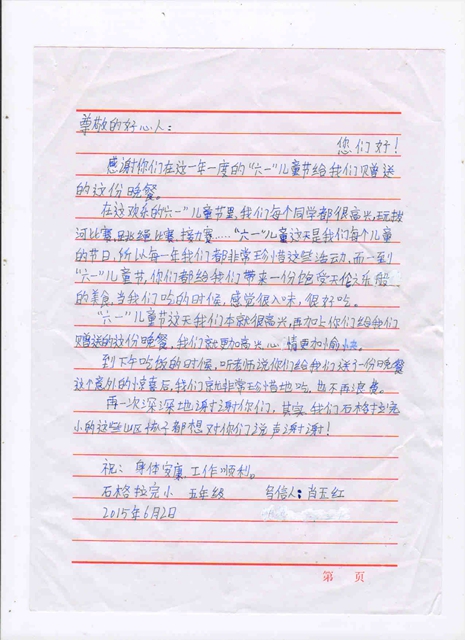 尊敬的好心人：
您们好！
感谢你们在这一年一度的"六一"儿童节给我们赠送
的这份晚餐。
在这欢乐的"六一"儿童节里，我们每个同学都很高兴，玩拔
河比赛，跳绳比赛，接力赛……"六一"儿童这天是我们每个儿童
的节日，所以每一年我们都非常珍惜这些活动，而一到
"六一"儿童节，你们都给我们带来一份享受天伦之乐船
的美食，当我们吃的时候，感觉很入味，很好吃。
"六一"儿童节这天我们本就很高兴，再加上你们给我们
赠送的这份晚餐，我们就更加高兴，心情更加愉快。
到下午吃饭的时候，听老师说你们给我们送了一份晚餐
这个意外的惊喜后，我们就非常珍惜地吃，也不再浪费。
再一次深深地谢谢你们，其实我们石格拉完
小的这些山区孩子都想对你们说声谢谢！
祝：身体安康，工作顺利。
石格拉完小 五年级 写信人：肖五红
2015年6月2日
第 页